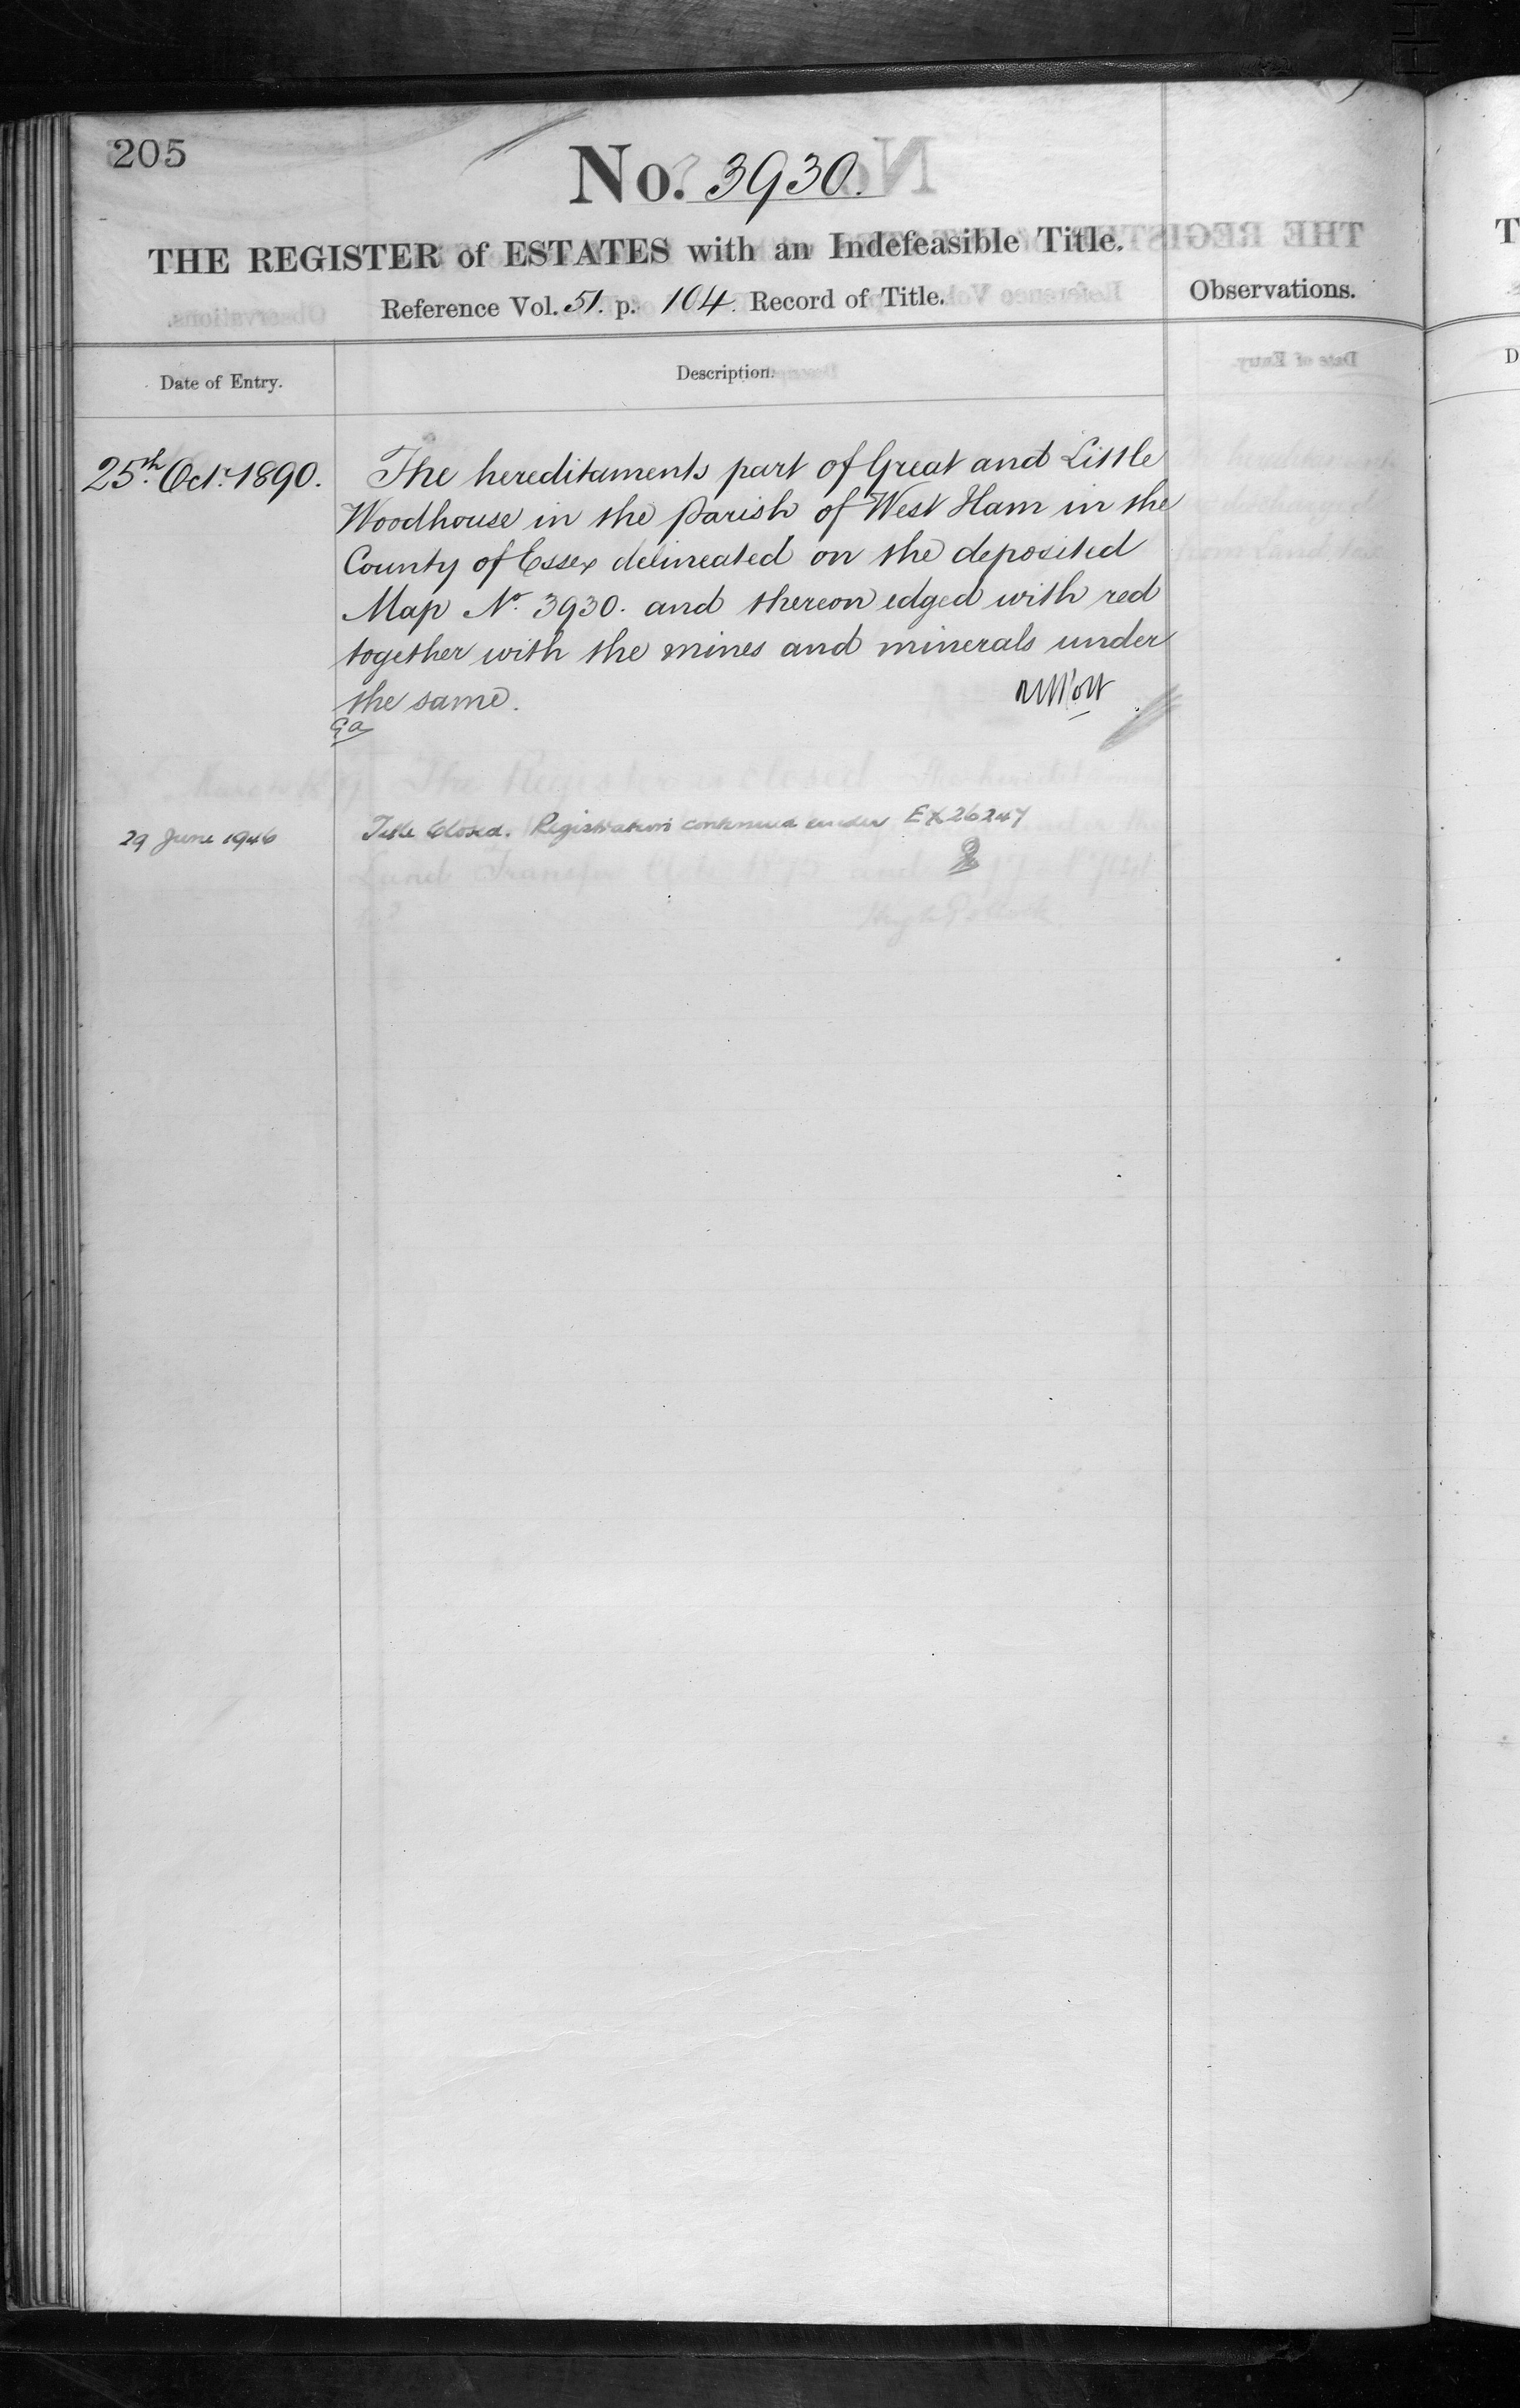 205
No. 3930.
THE REGISTER of ESTATES with an Indefeasible Title.
Reference Vol. 51. p. 104. Record of Title.
Observations.
Date of Entry.
Description.
25th. Octr. 1890.
The hereditaments part of Great and Little
Woodhouse in the Parish of West Ham in the
County of Essex delineated on the deposited
Map No. 3930. and thereon edged with red
together with the mines and minerals under
the same.
29 June 1946
Title Closed. Registration continued under EX26247